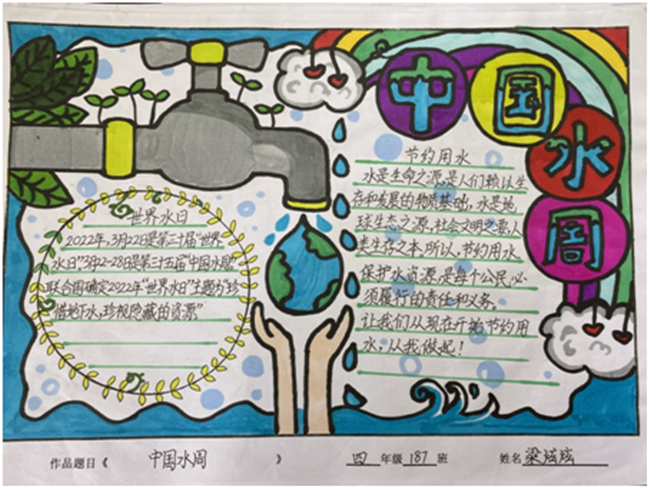 中国水周
节约用水
水是生命之源,是人们赖以生
存和发展的物质基础,水是地
球生态之源,社会文明之要,人
类生存之本,所以,节约用水
保护水资源,是每个公民,必
须履行的责任和义务,
让我们从现在开始节约用
水,从我做起!
世界水日
2022年,3月22日是第三十届"世界
水日",3月22-28日是第三十五届"中国水周"
联合国确定2022年"世界水日"主题为"珍
惜地下水,珍视隐藏的资源"
作品题目《 中国水周 》 四 年级 187 班 姓名 梁